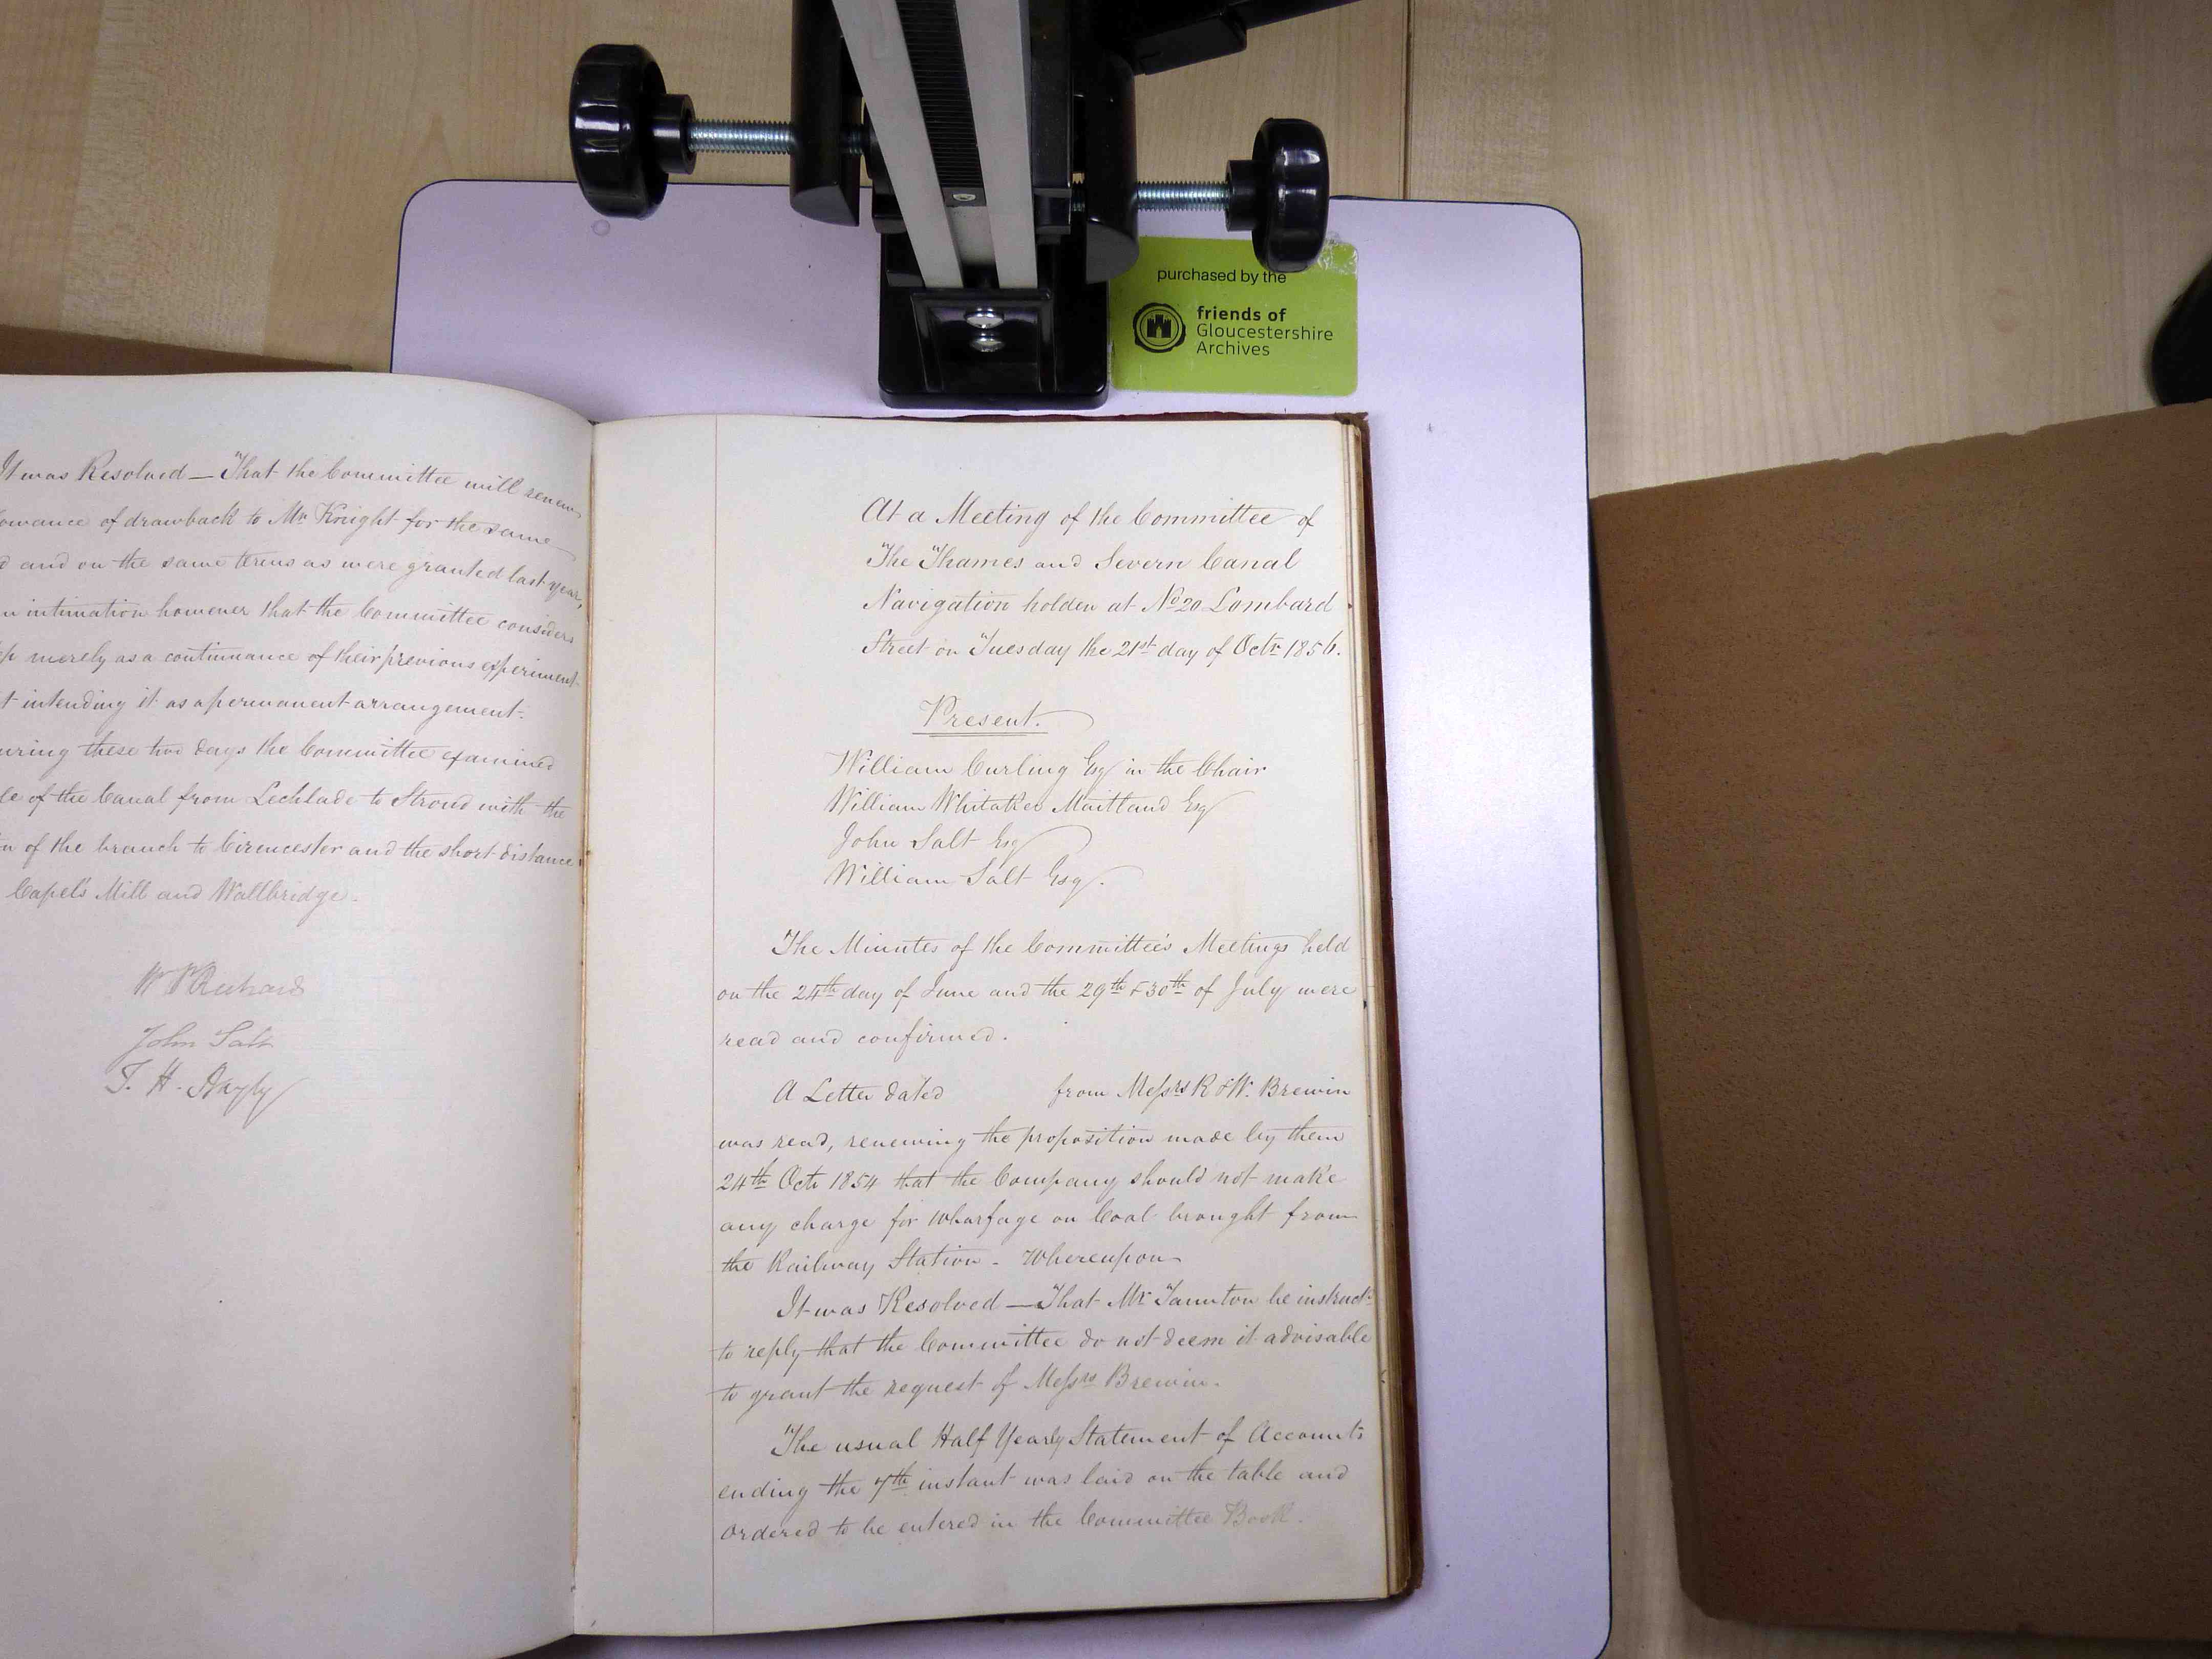 purchased by the
friends of
Gloucestershire
Archives
It was Resolved — That the Committee will renew
of drawback to Mr Knight for the same
and on the same terms as were granted last year,
intimation however that the Committee considers
merely as a continuance of their previous experiment
intending it as a permanent arrangement.
these two days the Committee examined
of the Canal from Lechlade to Stroud with the
of the branch to Cirencester and the short distance
Capel's Mill and Wallbridge.
John Salt
At a Meeting of the Committee of
The Thames and Severn Canal
Navigation holden at No 20 Lombard
Street on Tuesday the 21st day of Octr 1856.
Present.
William Curling Esq in the Chair
William Whitaker Maitland Esq
John Salt Esq
William Salt Esq.
The Minutes of the Committee's Meetings held
on the 24th day of June and the 29th & 30th of July were
read and confirmed.
A Letter dated from Messrs R & W. Brewin
was read, renewing the proposition made by them
24th Octr 1854 that the Company should not make
any charge for Wharfage on Coal brought from
the Railway Station - Whereupon
It was Resolved — That Mr Taunton be instructd
to reply that the Committee do not deem it advisable
to grant the request of Messrs Brewin.
The usual Half Yearly Statement of Accounts
ending the 7th instant was laid on the table and
ordered to be entered in the Committee Book.